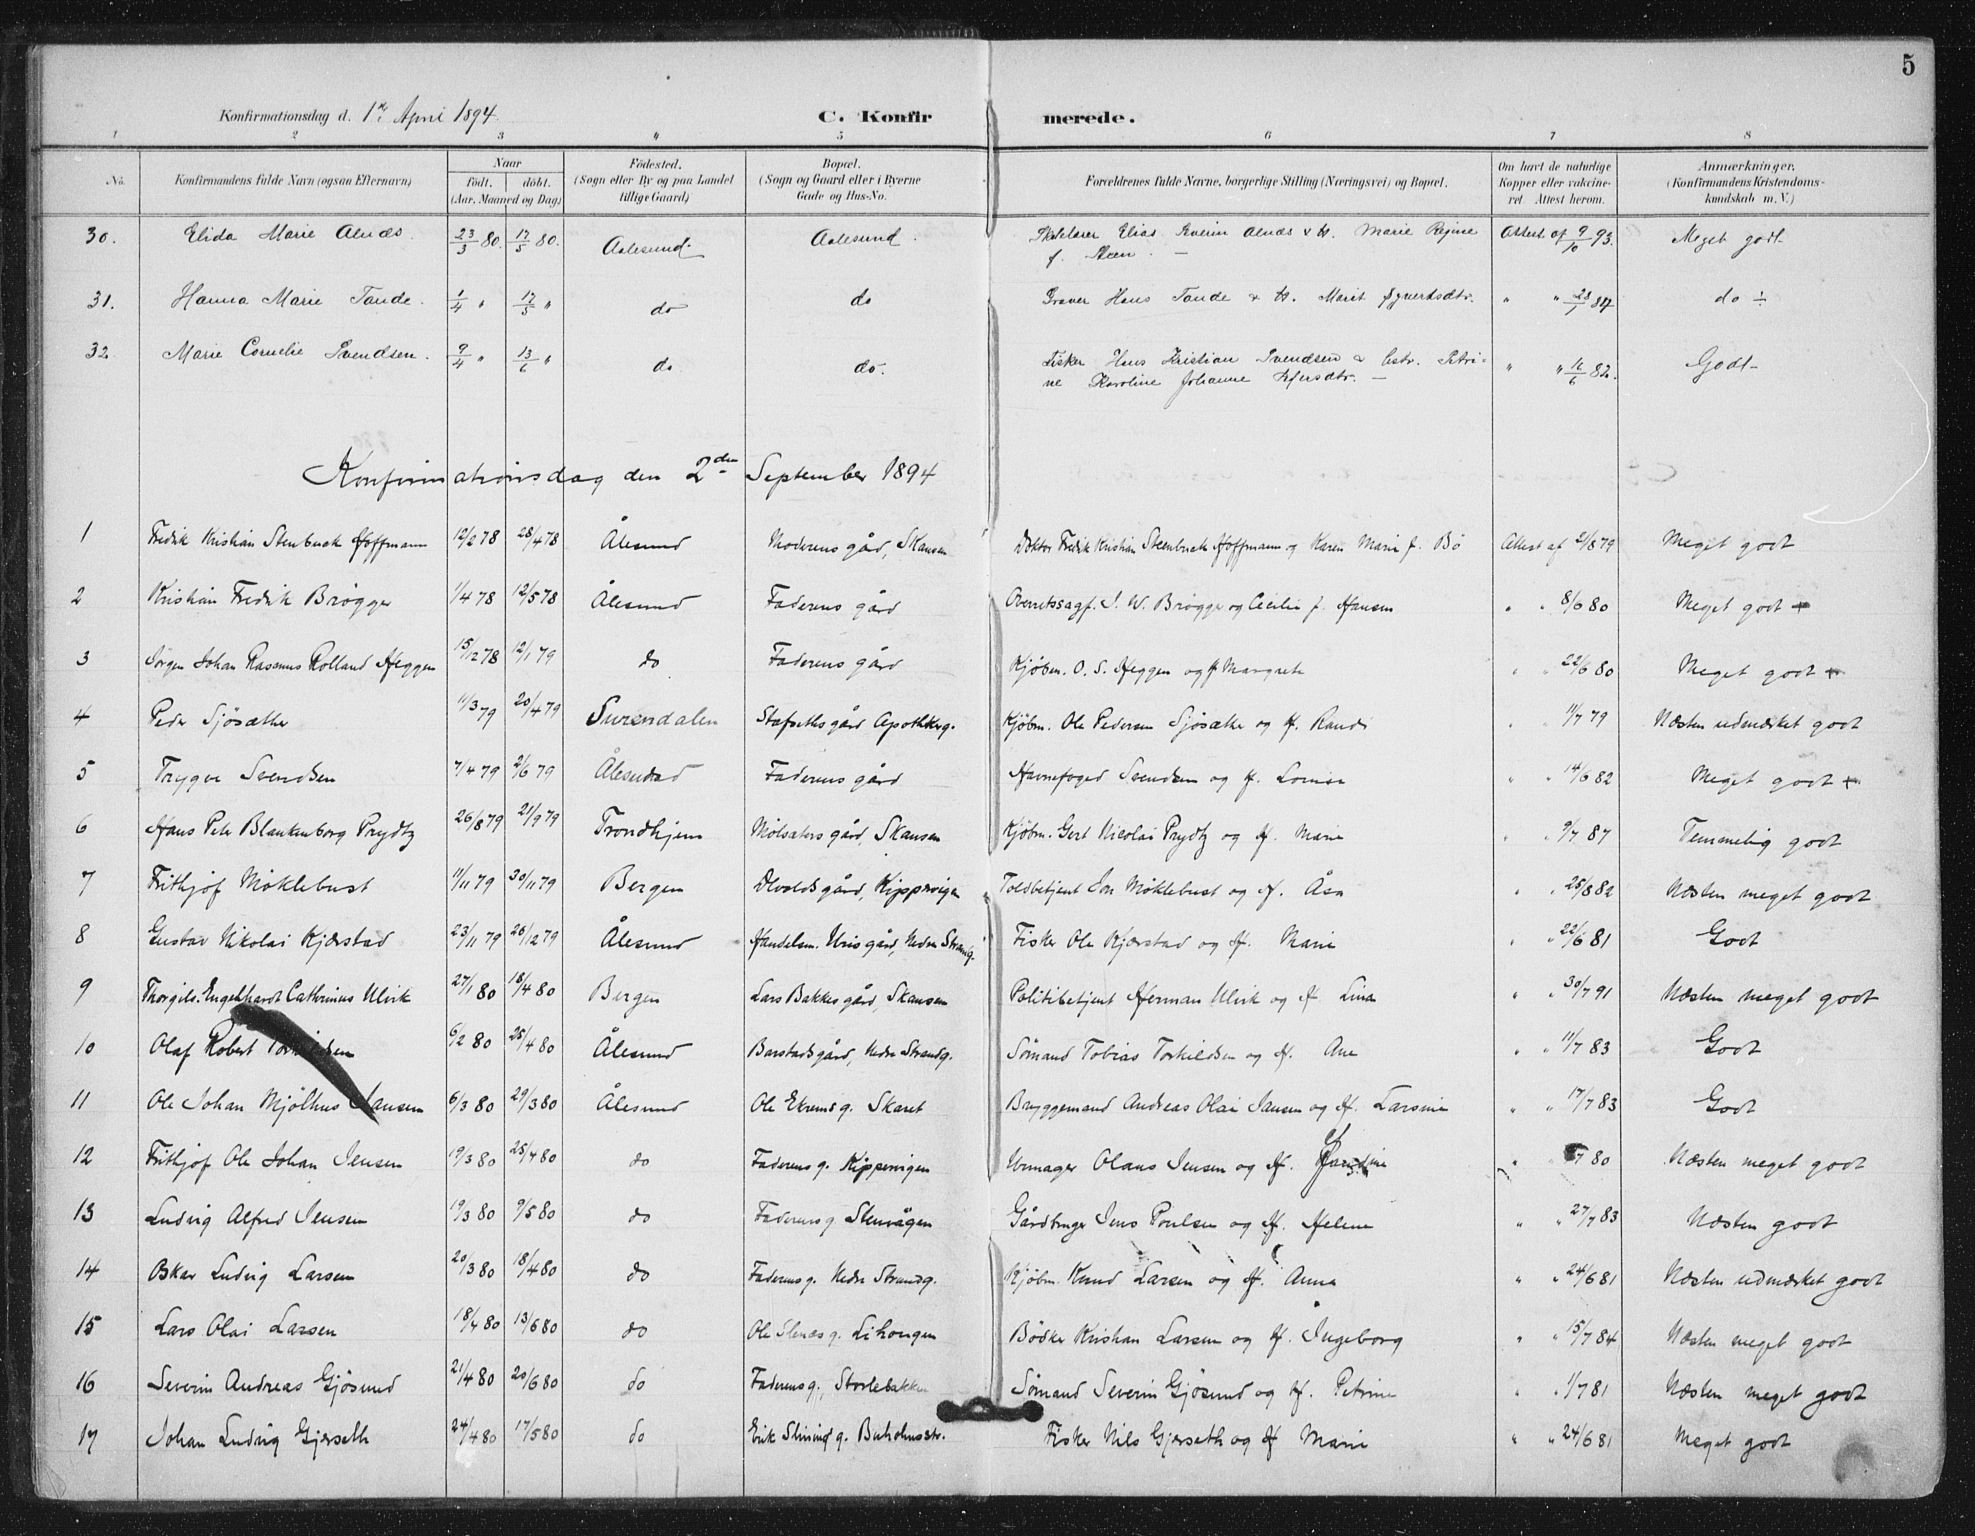 5
Konfirmationsdag d. 1ste April 1894. C. Konfirmerede.
1 2 3 4 5 6 7 8
No. Konfirmandens fulde Navn (ogsaa Efternavn) Naar født. døbt. (Aar, Maaned og Dag) Fødested. (Sogn eller By og paa Landet tillige Gaard) Bopæl. (Sogn og Gaard eller i Byerne Gade og Hus-No. Forældrenes fulde Navne, borgerlige Stilling (Næringsvei) og Bopæl. Om havt de naturlige Kopper eller vakcineret. Attest herom. Anmærkninger. (Konfirmandens Kristendomskundskab m. V.)
30. Elida Marie Alnæs. 23/3 80. 17/5 80. Aalesund. Aalesund. Elias Severin Alnæs & H. Marie Regine f. Steen. — Attest af 9/10 93. Meget godt
31. Hanna Marie Tande. 1/4 " 17/5 " do do Graver Hans Tande & H. Marit " " 28/7 84 do ÷
32. Marie Cornelie Svendsen. 9/4 " 13/6 " do do. Fisker Hans Kristian Svendsen & Petrine Karoline Johanne — " " 16/6 82. Godt
Konfirmationsdag den 2den September 1894
1 Fredrik Kristian Stenbuck Hoffmann 12/2 78 28/4 78 Ålesund Moderens gård, Skansen Doktor Fredik Kristian Steenbuck Hoffmann og Karen Marie f. Bö Attest af 2/8 79 Meget godt
2 Kristian Fredrik Brögger 1/4 78 12/5 78 Ålesund Faderens gård Overretssagf. J. W. Brögger og Cecilie f. Hansen " " 8/6 80 Meget godt +
3 Jörgen Johan Rasmus Rolland Heggen 15/12 78 12/1 79 do Faderens gård Kjöbm. O. S. Heggen og H Margrete " " 22/6 80 Meget godt +
4 Peder Sjösæther 11/3 79 20/4 79 Surendalen Stafsethsgård Apothkerg. Kjöbm. Ole Pedersen Sjösæthe og H. Randi " " 11/7 79 Næsten udmærket godt
5 Trygve Svendsen 7/4 79 2/6 79 Ålesund Faderens gård Havnefoged Svendsen og H. Lovise " " 14/6 82 Meget godt +
6 Hans Peter Blankenborg Prydtz 26/8 79 21/9 79 Trondhjem Molsæters gård, Skansen Kjöbm. Gert Nicolai Prydtz og H. Marie " " 9/7 87 Temmelig godt
7 Frithjof Möklebust 11/11 79 30/11 79 Bergen Devoldsgård, Kippervigen Toldbetjent Jon Möklebust og H. Åsa " " 25/8 82 Næsten meget godt
8 Gustav Nikolai Kjærstad 23/11 79 26/12 79 Ålesund Handelsm. Uris gård, Nedre Strandg. Fisker Ole Kjærstad og H. Marie " " 22/6 81 Godt
9 Thorgils Engelhardt Cathrinus Ulvik 27/1 80 18/4 80 Bergen Lars Bakkes gård, Skansen Politibetjent Herman Ulvik og H Lina " " 30/7 91 Næsten meget godt
10 Olaf Robert Torkildsen 6/2 80 25/4 80 Ålesund Barstadsgård, Nedre Strandg. Sömand Tobias Torkildsen og H. Ane " " 11/7 83 Godt
11 Ole Johan Mjölhus Jansen 6/3 80 29/3 80 Ålesund Ole Ekremsg. Skaret Bryggemand Andreas Olai Jansen og H. Larsine " " 17/7 83 Godt
12 Frithjof Ole Johan Jensen 19/3 80 25/4 80 do Faderens g. Kippervigen Urmager Olaus Jensen og H. " 7 80 Næsten meget godt
13 Ludvig Alfred Jensen 19/3 80 9/5 80 do Faderens g. Stenvågen Gårdbruger Jens Poulsen og H. Helene " " 27/7 83 Næsten godt
14 Oskar Ludvig Larsen 20/3 80 18/4 80 do Faderens g. Nedre Strandg. Kjöbm. Knud Larsen og H. Anna " " 24/6 81 Næsten udmærket godt
15 Lars Olai Larsen 18/4 80 13/6 80 do Ole Slenæs g. Lihougen Bödker Kristian Larsen og H. Ingeborg " " 15/7 84 Næsten meget godt
16 Severin Andreas Gjösund 21/4 80 20/6 80 do Faderens g., Storlebakken Sömand Severin Gjösund og H. Petrine " " 1/7 81 Næsten meget godt
17 Johan Ludvig Gjerseth 24/4 80 17/5 80 do Erik Slinind g. Buholmsstr. Fisker Nils Gjerseth og H Marie " " 24/6 81 Meget godt